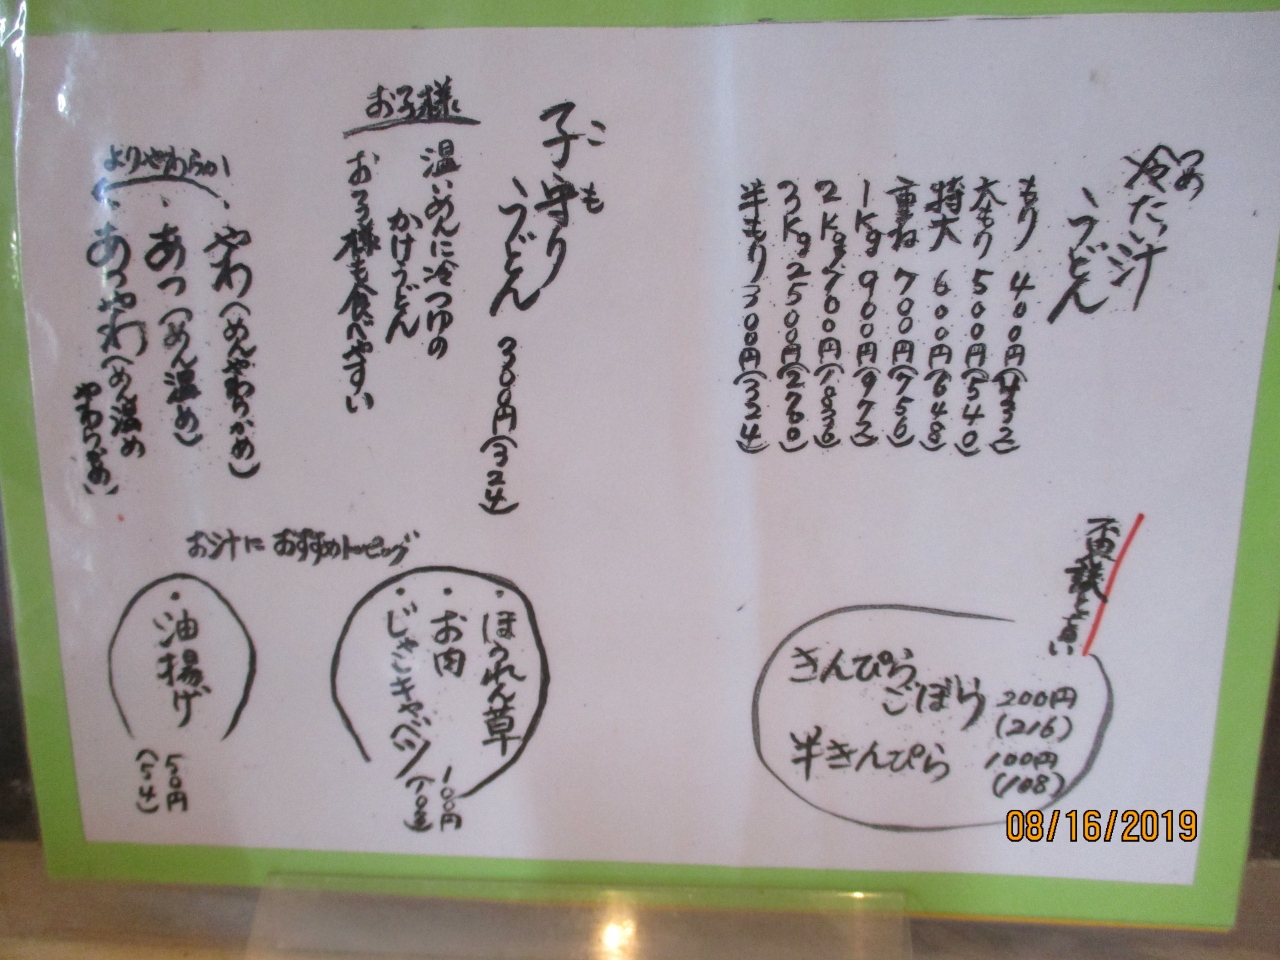 冷たい汁
つめ
うどん
もり 400円(432)
大もり 500円(540)
特大 600円(648)
重ね 700円(756)
1Kg 900円(972)
2Kg 1700円(1836)
3Kg 2500円(2700)
半もり 300円(324)
子守り
こも
うどん 300円(324)
お子様
温いめんに冷つゆの
かけうどん
お子様も食べやすい
よりやわらか
やわ(めんやわらかめ)
あつ(めん温め)
あつやわ(めん温め
やわらかめ)
不思議と良い
きんぴら
ごぼう 200円
(216)
半きんぴら 100円
(108)
お汁に おすすめトッピング
・ほうれん草
・お肉
・じゃこキャベツ
100円
(108)
・油揚げ
50円
(54)
08/16/2019